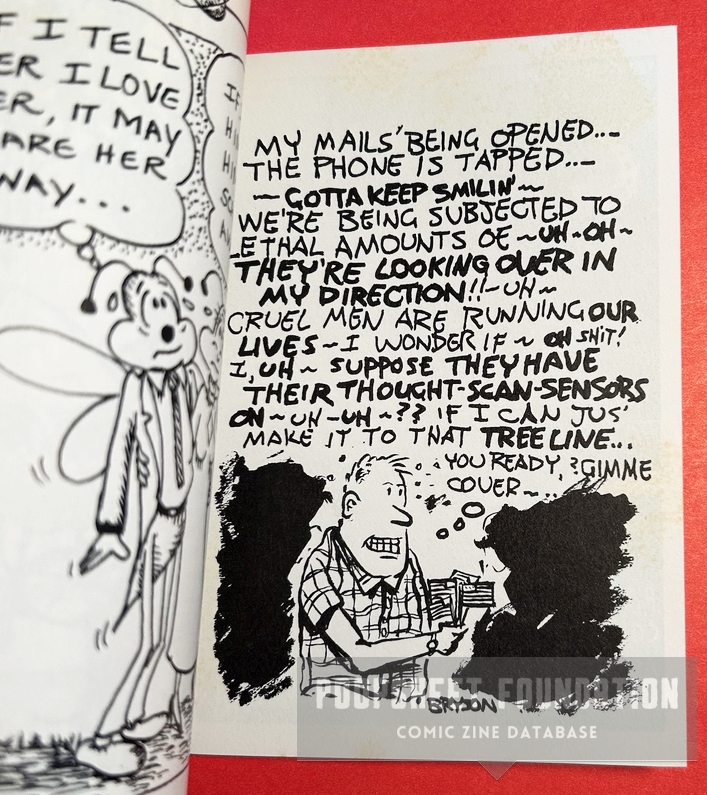 F I TELL
ER I LOVE
ER, IT MAY
ARE HER
WAY...
MY MAILS' BEING OPENED...~
THE PHONE IS TAPPED...~
~ GOTTA KEEP SMILIN' ~
WE'RE BEING SUBJECTED TO
LETHAL AMOUNTS OF ~UH-OH~
THEY'RE LOOKING OVER IN
MY DIRECTION!! ~UH~
CRUEL MEN ARE RUNNING OUR
LIVES ~ I WONDER IF ~ OH SHIT!
I, UH ~ SUPPOSE THEY HAVE
THEIR THOUGHT-SCAN-SENSORS
ON ~ UH-UH ~?? IF I CAN JUS'
MAKE IT TO THAT TREE LINE...
YOU READY,? GIMME
COVER ~...
BRYSON
POOPSHEET FOUNDATION
COMIC ZINE DATABASE